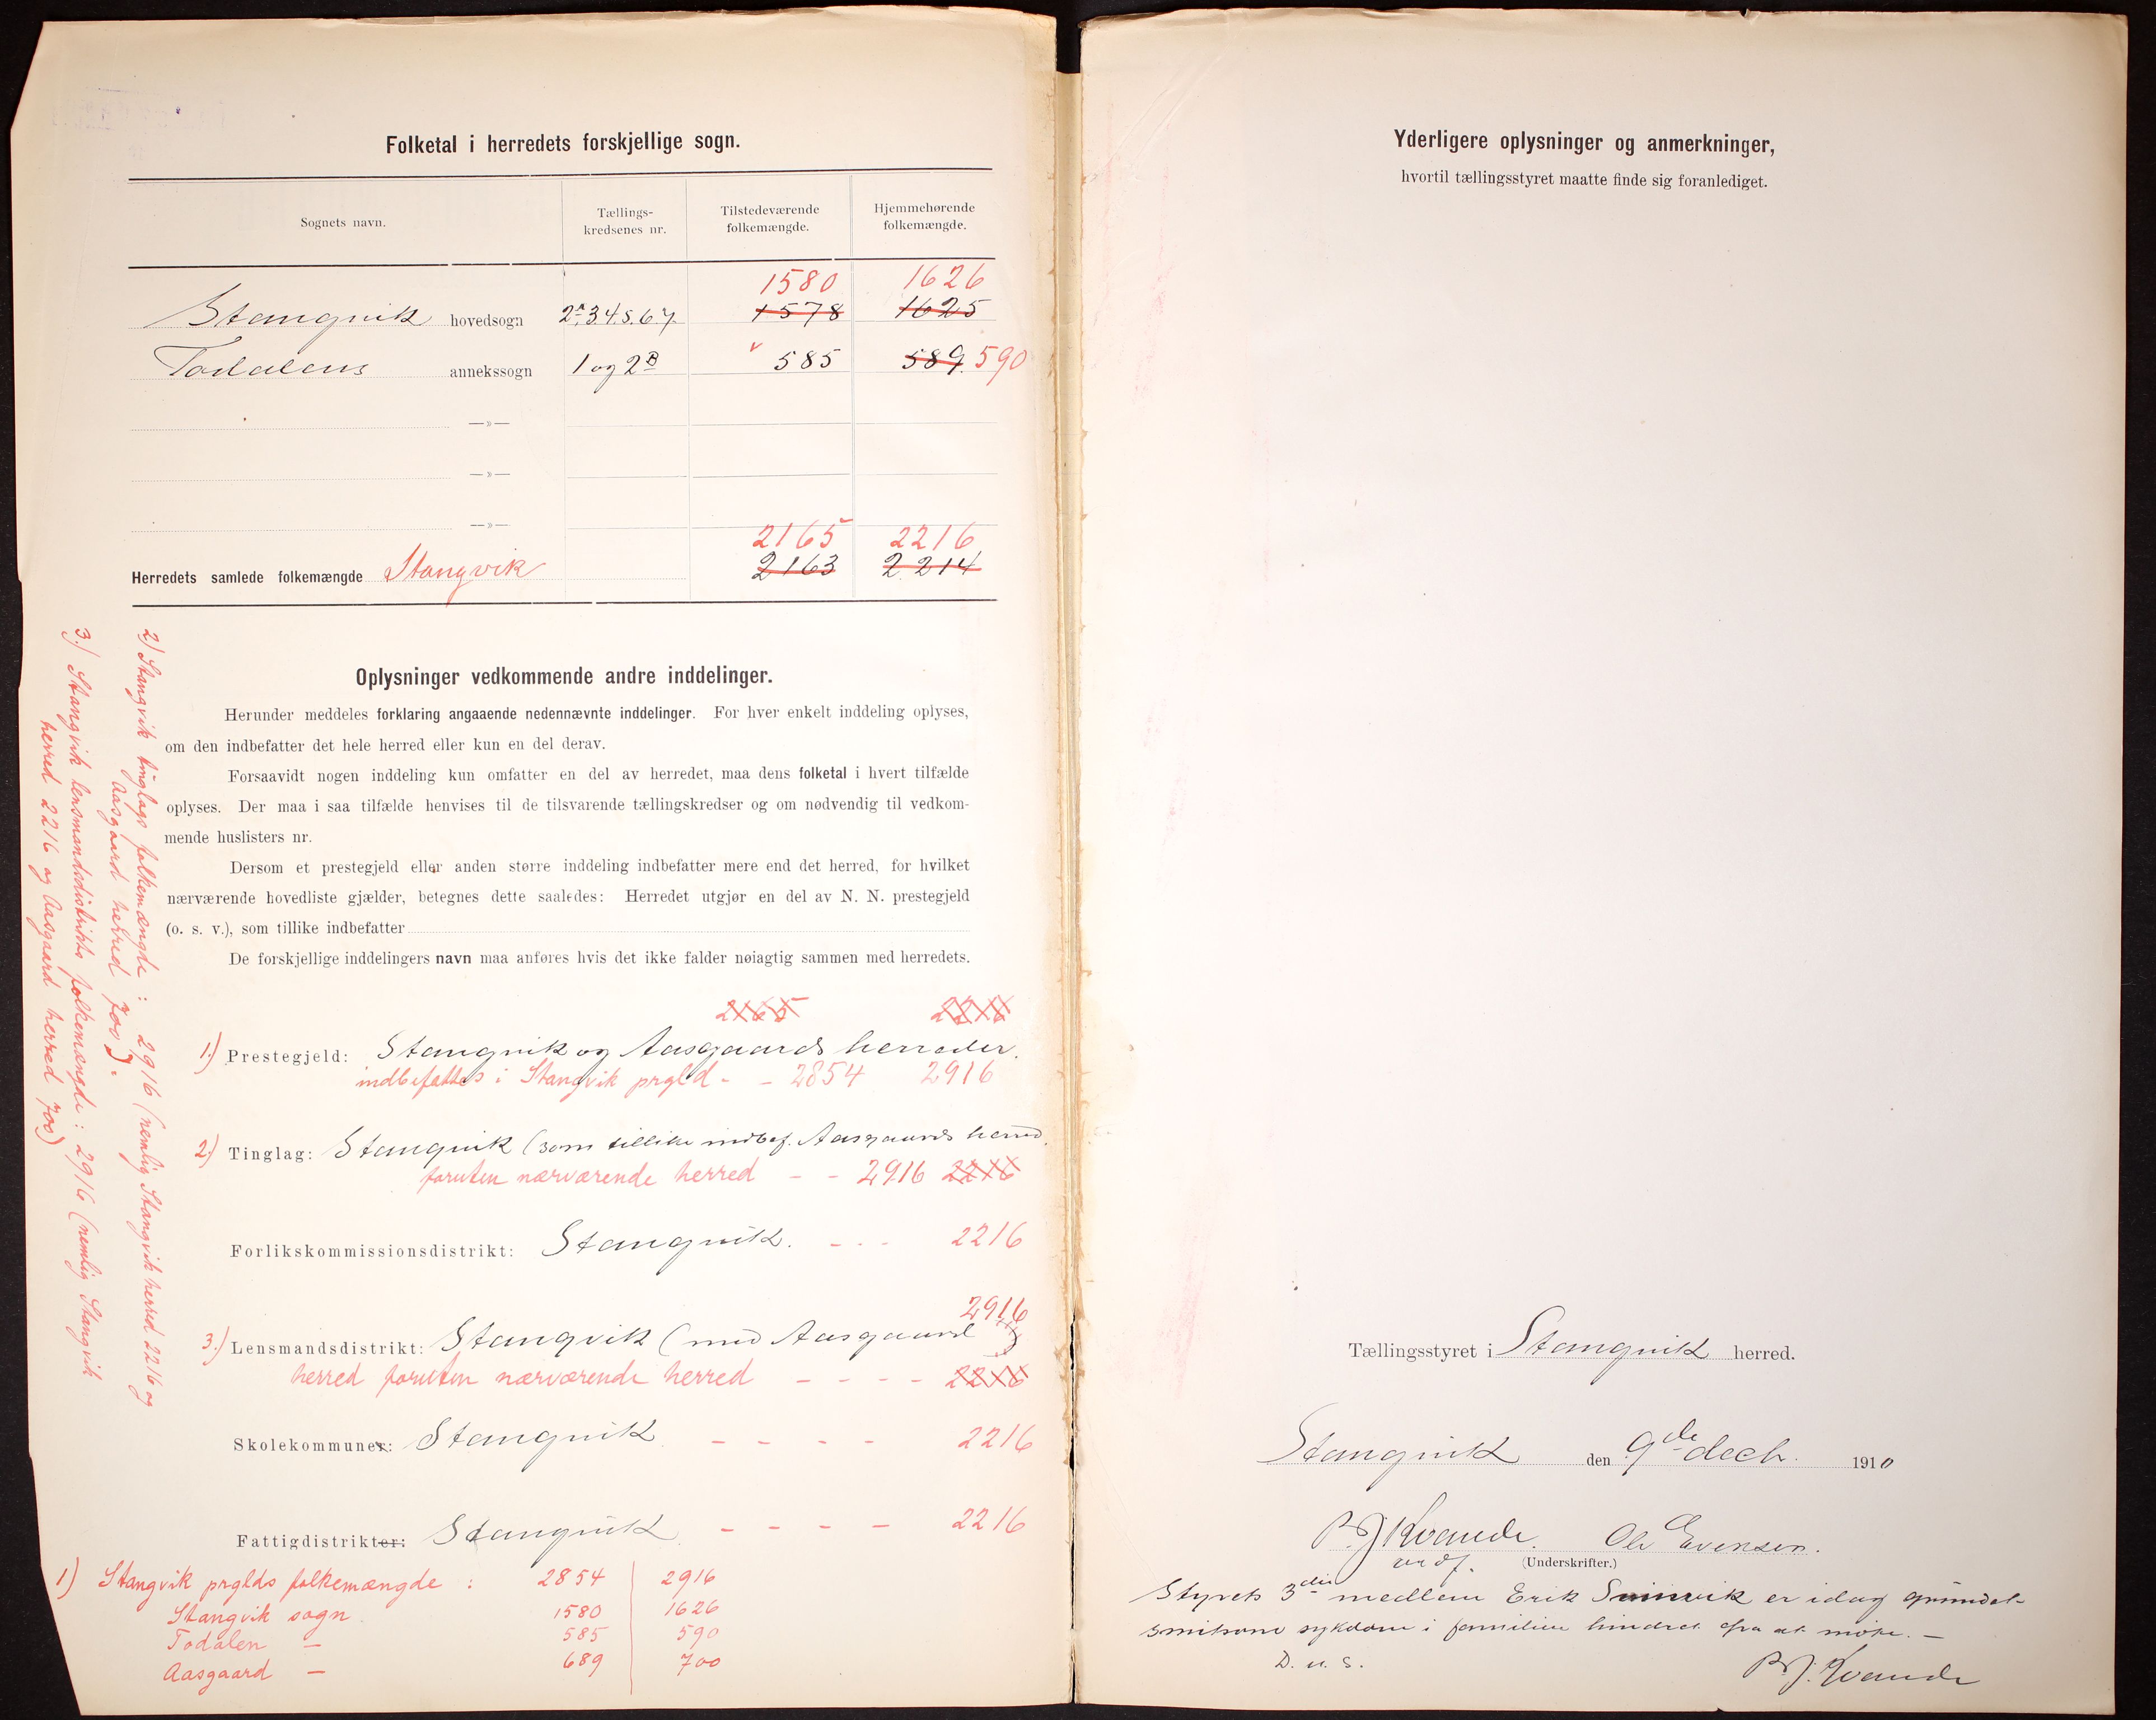 Folketal i herredets forskjellige sogn.
Sognets navn.
Tællings-
kredsenes nr.
Tilstedeværende
folkemængde.
Hjemmehørende
folkemængde.
1580 1626
Stangvik hovedsogn 2A.3.4.5.6.7. 1578 1625
Todalens annekssogn 1 og 2B 585 589. 590
—»—
—»—
—»—
2165 2216
Herredets samlede folkemængde Stangvik 2163 2214
Oplysninger vedkommende andre inddelinger.
Herunder meddeles forklaring angaaende nedennævnte inddelinger. For hver enkelt inddeling oplyses,
om den indbefatter det hele herred eller kun en del derav.
Forsaavidt nogen inddeling kun omfatter en del av herredet, maa dens folketal i hvert tilfælde
oplyses. Der maa i saa tilfælde henvises til de tilsvarende tællingskredser og om nødvendig til vedkom-
mende huslisters nr.
Dersom et prestegjeld eller anden større inddeling indbefatter mere end det herred, for hvilket
nærværende hovedliste gjælder, betegnes dette saaledes: Herredet utgjør en del av N. N. prestegjeld
(o. s. v.), som tillike indbefatter
De forskjellige inddelingers navn maa anføres hvis det ikke falder nøiagtig sammen med herredets.
2165 2216
1.) Prestegjeld: Stangvik og Aasgaards herreder.
indbefattes i Stangvik prgld - - 2854 2916
2.) Tinglag: Stangvik (som tillike indbef. Aasgaards herred.
foruten nærværende herred - - 2916 2216
Forlikskommissionsdistrikt: Stangvik. - - - 2216
2916
3.) Lensmandsdistrikt: Stangvik (med Aasgaard)
herred foruten nærværende herred - - - - 2216
Skolekommuner: Stangvik - - - - 2216
Fattigdistrikter: Stangvik - - - - 2216
1) Stangvik prglds folkemængde : 2854 2916
Stangvik sogn. 1580 1626
Todalen — 585 590
Aasgaard — 689 700
2) Stangvik tinglags folkemængde : 2916 (nemlig Stangvik herred 2216 og
Aasgaard herred 700).
3.) Stangvik lensmandsdistrikts folkemængde : 2916 (nemlig Stangvik
herred 2216 og Aasgaard herred 700)
Yderligere oplysninger og anmerkninger,
hvortil tællingsstyret maatte finde sig foranlediget.
Tællingsstyret i Stangvik herred.
Stangvik den 9de decb. 1910
B J Kvande. Ole Evensen.
ordf. (Underskrifter.)
Styrets 3die medlem Erik er idag grundet
smitsom sykdom i familien hindret fra at møte. —
D. u. s.
B J. Kvande